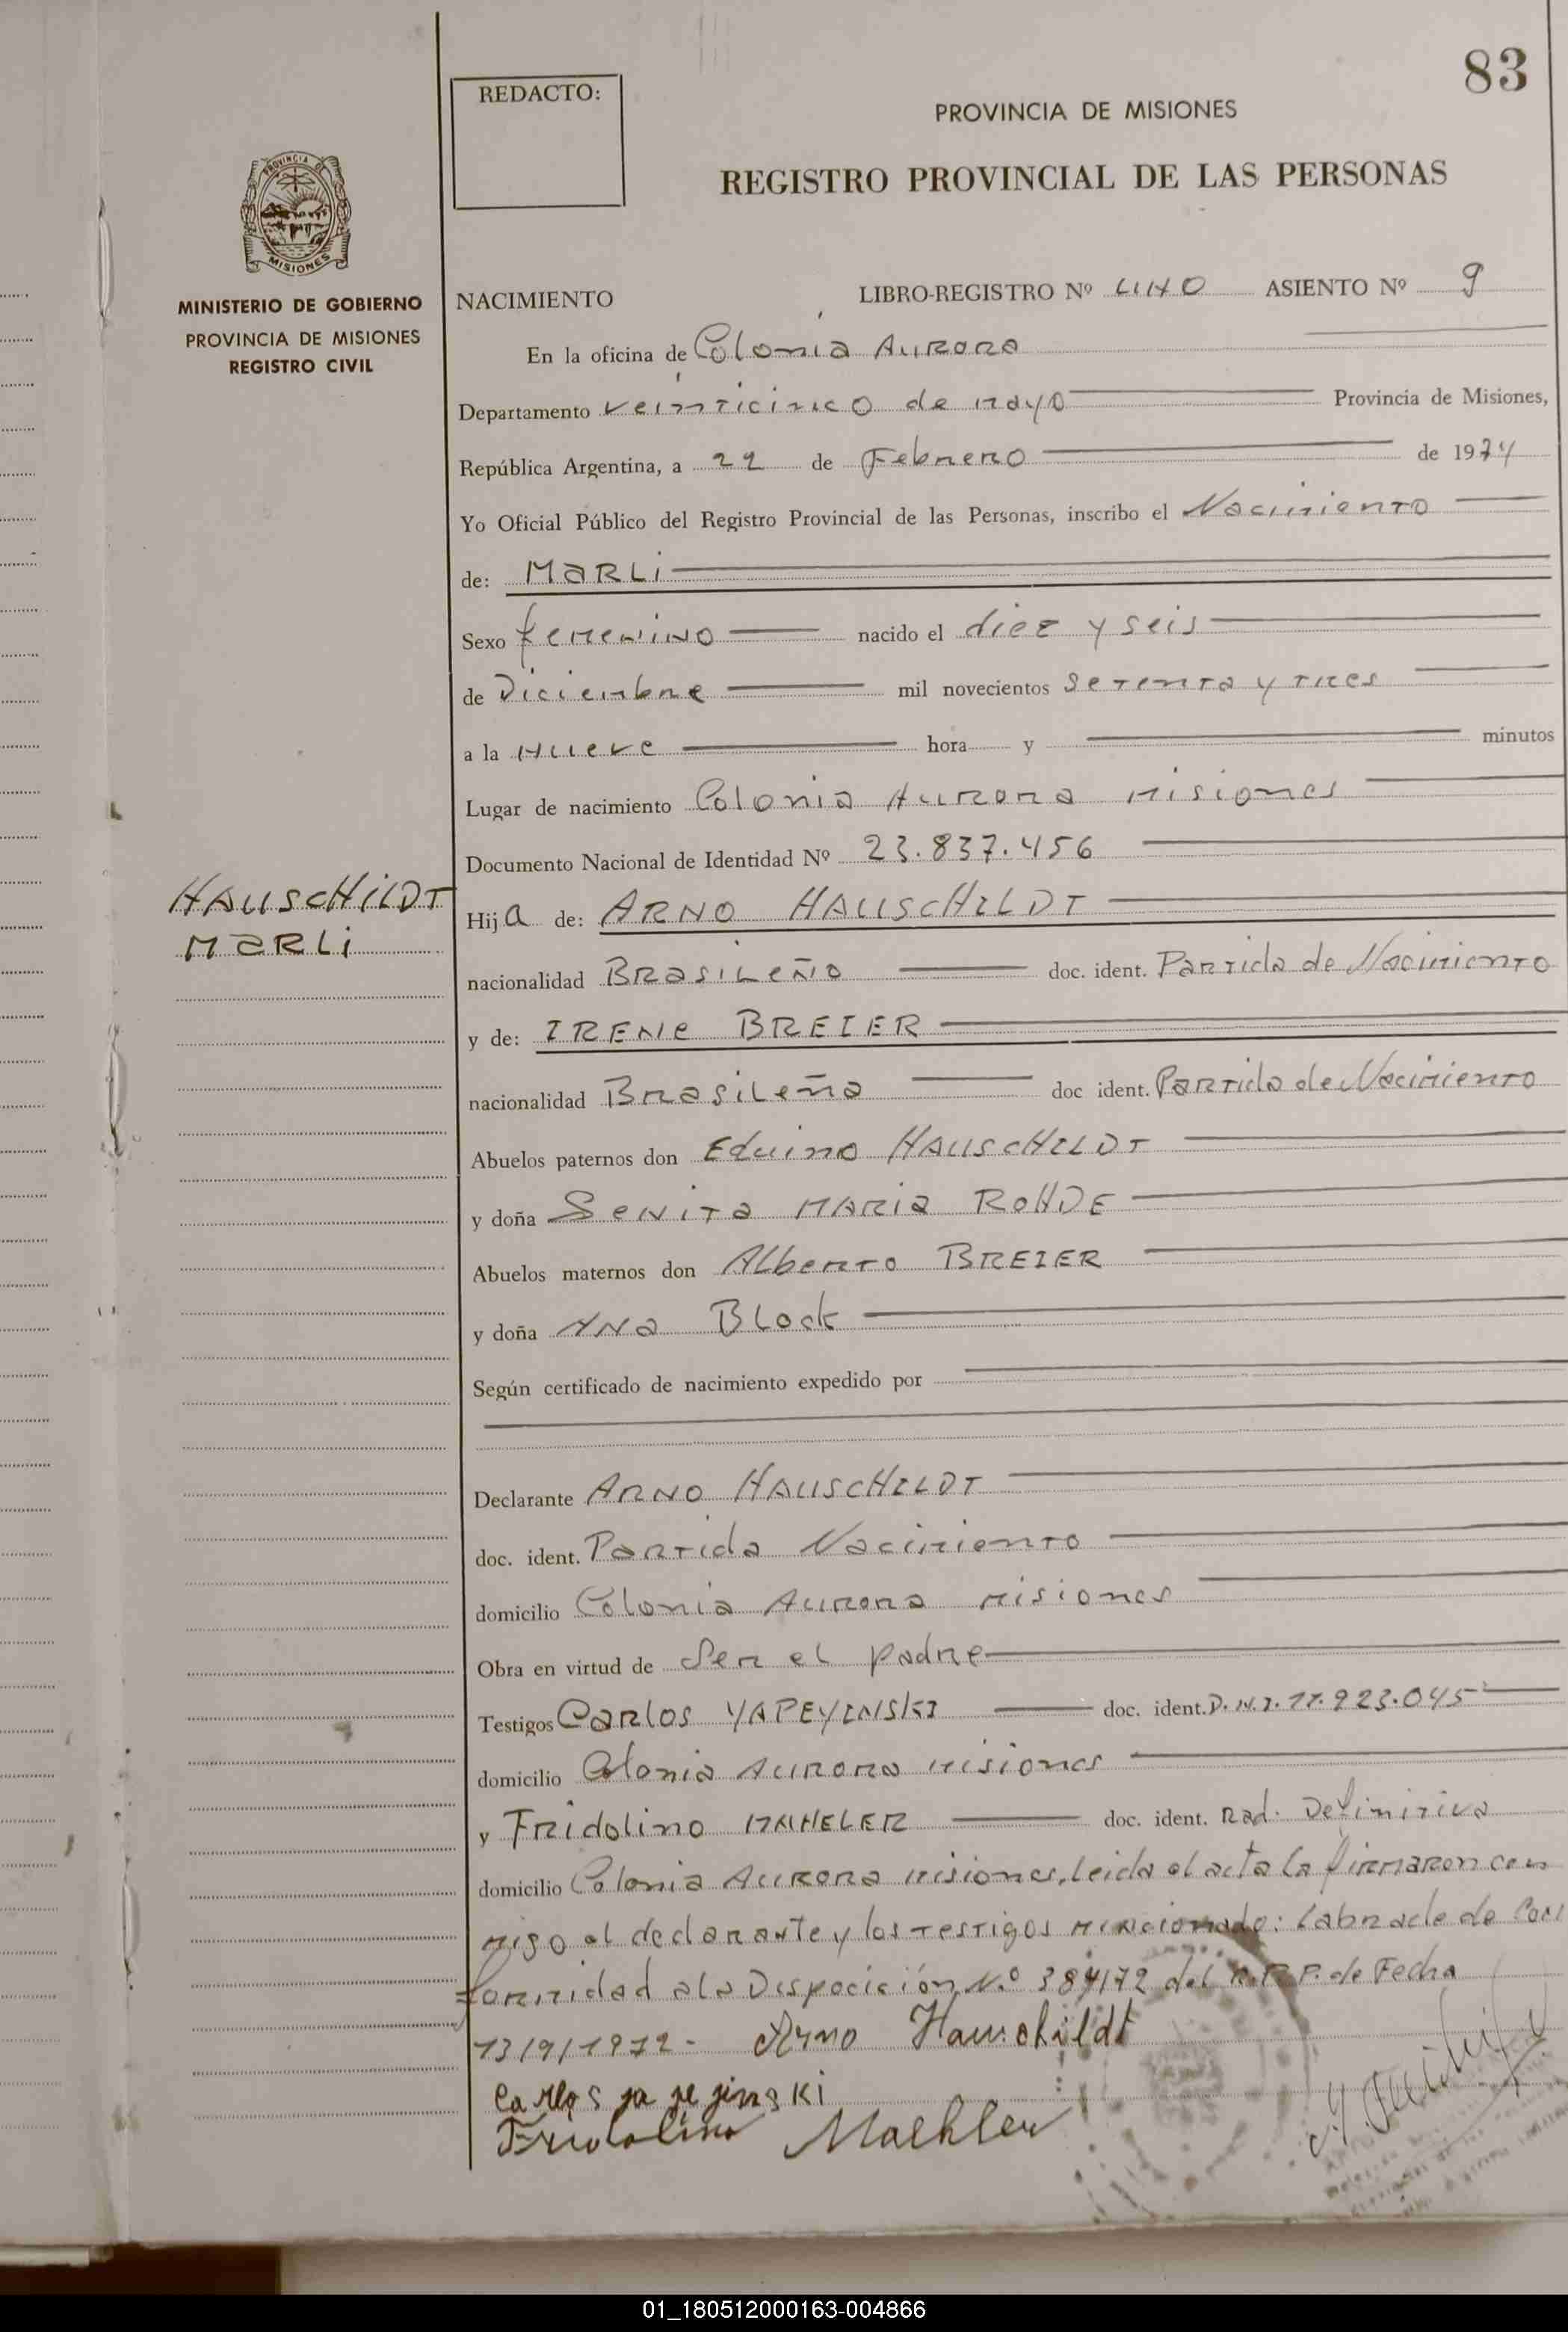 83
REDACTO:
PROVINCIA DE MISIONES
REGISTRO PROVINCIAL DE LAS PERSONAS
PROVINCIA DE
MISIONES
MINISTERIO DE GOBIERNO
PROVINCIA DE MISIONES
REGISTRO CIVIL
NACIMIENTO LIBRO-REGISTRO Nº UNO ASIENTO Nº 9
En la oficina de Colonia Aurora
Departamento veinticinco de mayo Provincia de Misiones,
República Argentina, a 22 de Febrero de 1974
Yo Oficial Público del Registro Provincial de las Personas, inscribo el Nacimiento
de: MARLi
Sexo femenino nacido el diez y seis
de Diciembre mil novecientos setenta y tres
a la nueve hora y minutos
Lugar de nacimiento Colonia Aurora Misiones
Documento Nacional de Identidad Nº 23.837.456
HAUSCHiLDT
MARLi
Hija de: ARNO HAUSCHILDT
nacionalidad Brasileño doc. ident. Partida de Nacimiento
y de: IRENe BREIER
nacionalidad Brasileña doc ident. Partida de Nacimiento
Abuelos paternos don Eduino HAUSCHILDT
y doña Senita MARia ROHDE
Abuelos maternos don Alberto BREIER
y doña Ana Block
Según certificado de nacimiento expedido por
Declarante ARNO HAUSCHILDT
doc. ident. Partida Nacimiento
domicilio Colonia Aurora Misiones
Obra en virtud de Ser el padre
Testigos Carlos YAPEYINSKI doc. ident. D.N.I. 11.923.045
domicilio Colonia Aurora Misiones
y Fridolino MAHELER doc. ident. Rad. Definitiva
domicilio Colonia Aurora Misiones, leida el acta la firmaron con
migo el declarante y los testigos mencionado: Labrade de Con
formidad a la Dispocición N.º 384/72 del R.P.P. de Fecha
13/9/1972- Arno Hauschildt
Carlos ja pe jinski
Fridolino Maehler
01_180512000163-004866